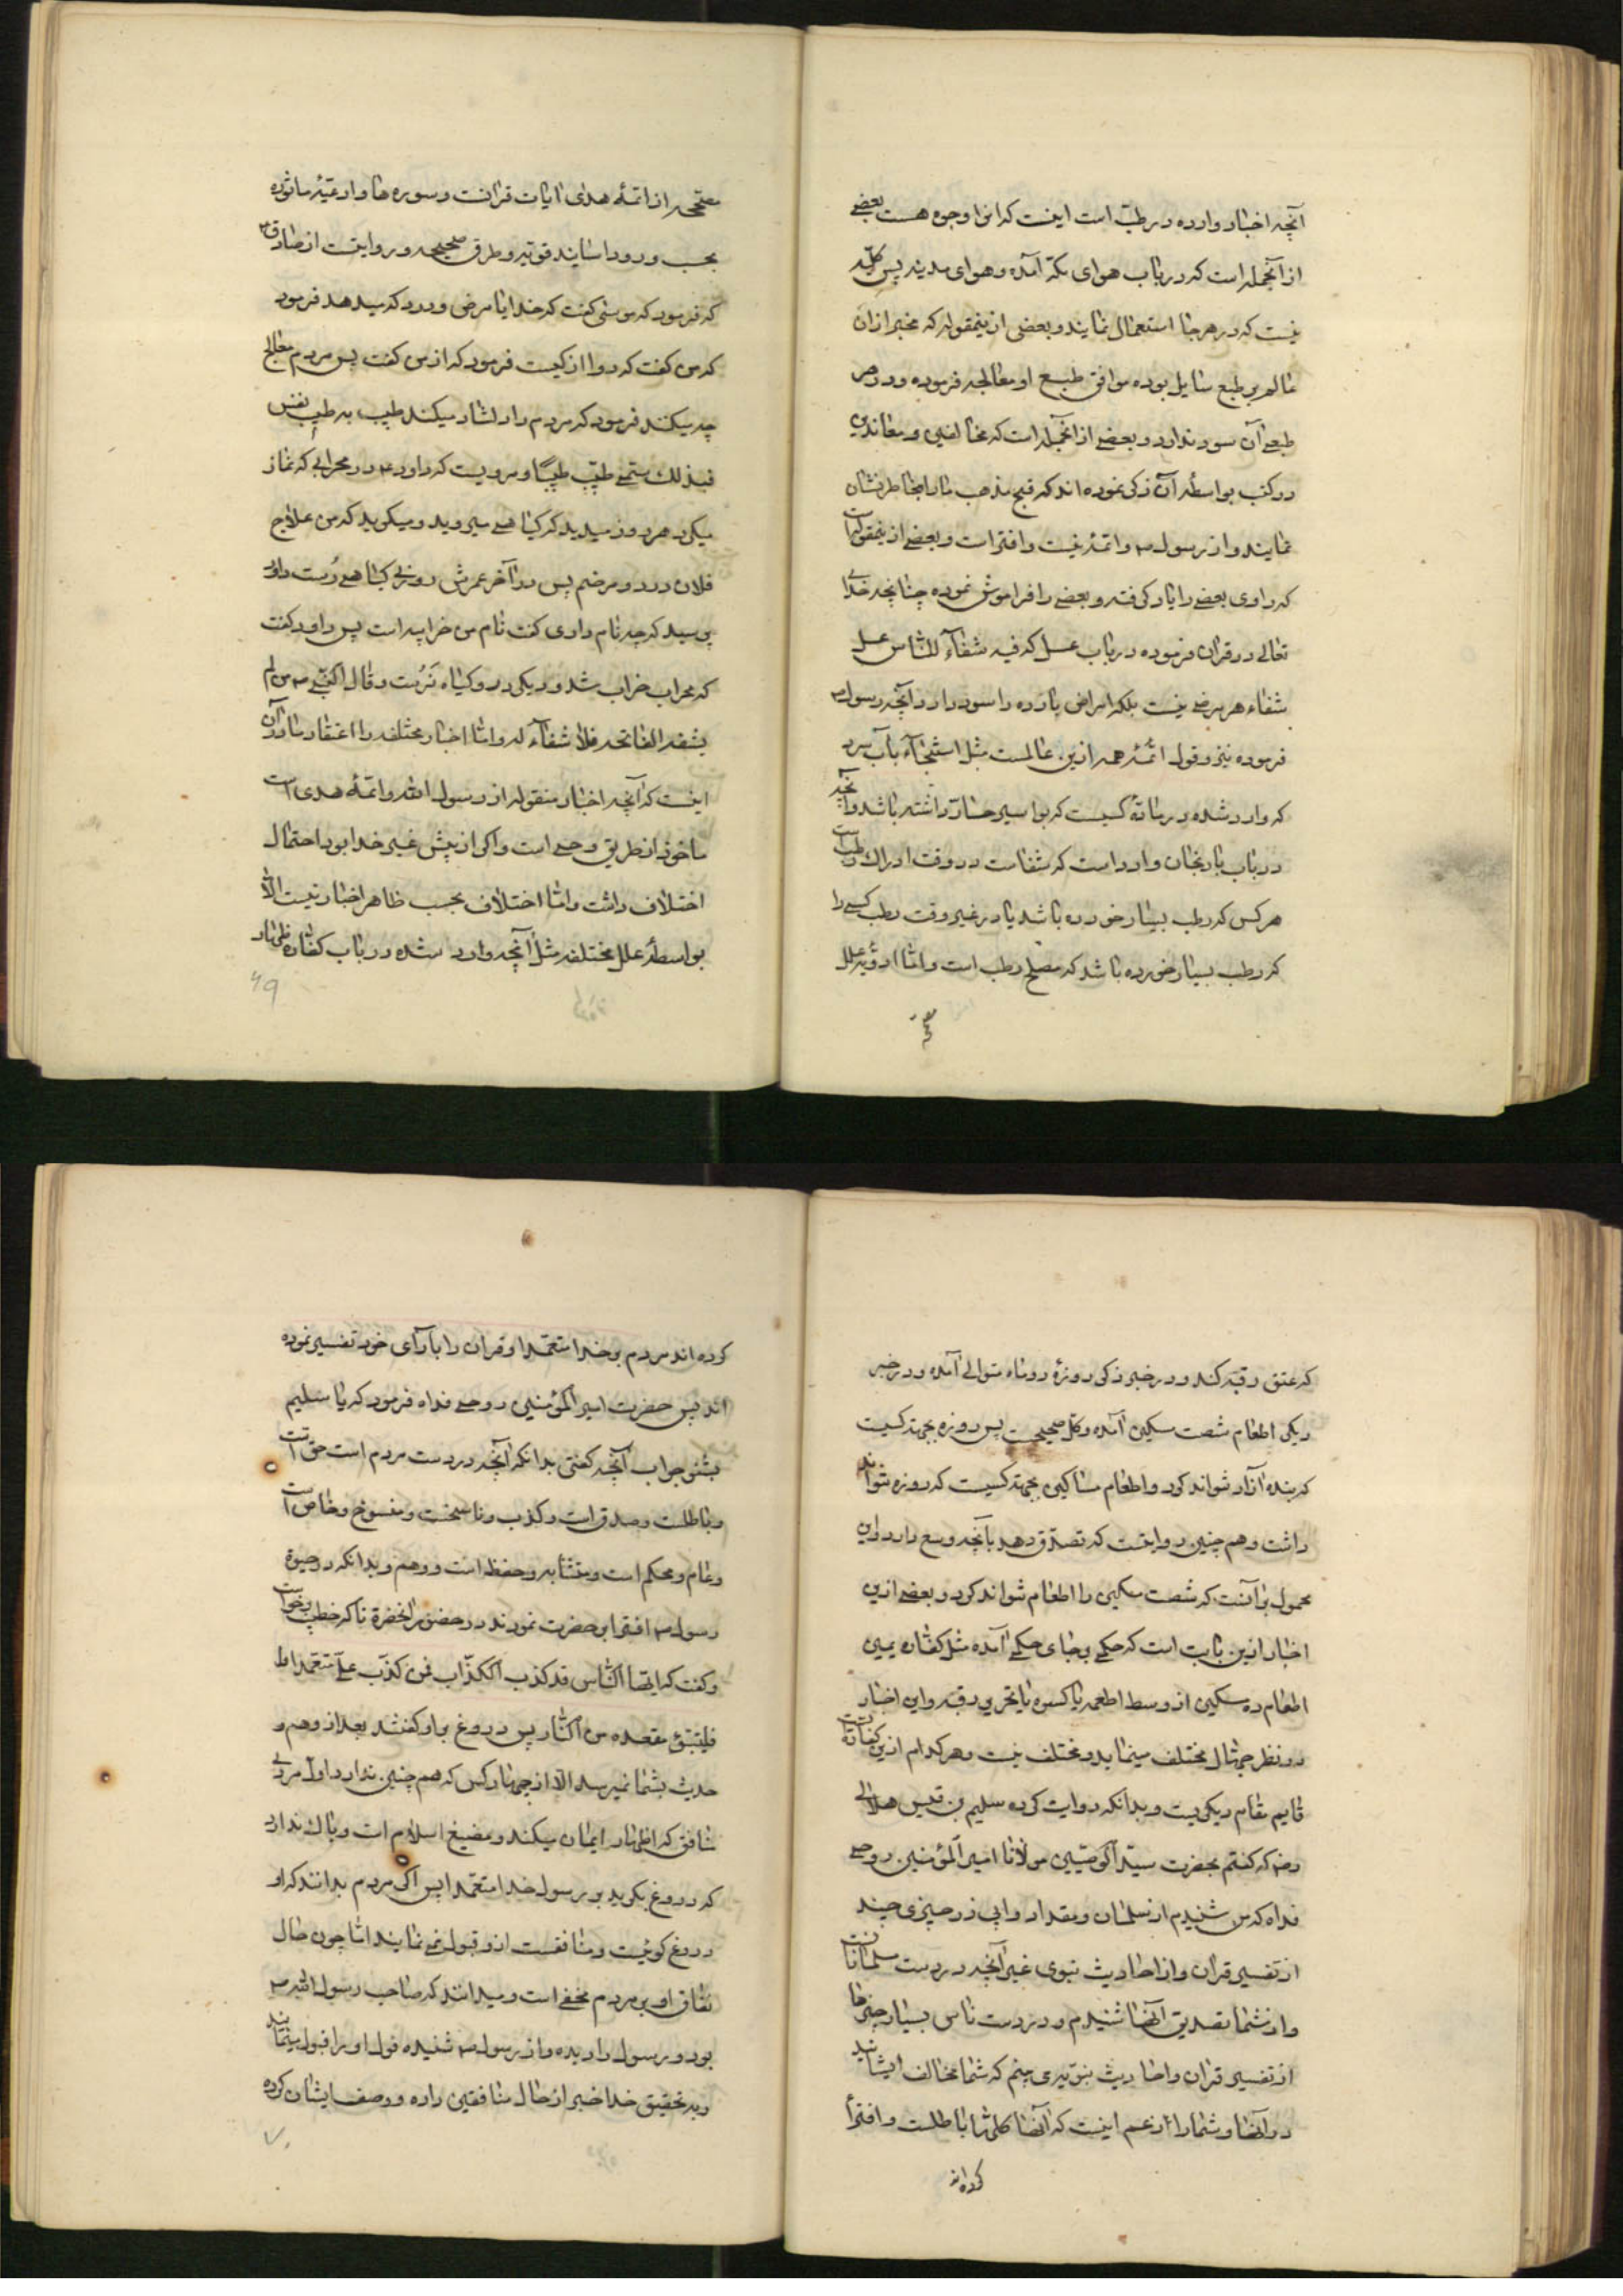 آنچه اخبار وارده در طب است اینست که انرا وجوه هست بعضے
از آنجمله است که در باب هوای مکّه آمده و هوای مدینه پس کلّیه
نیست که در هر جا استعمال نمایند و بعضی ازینمقوله که مخبر از ان
عالم بر طبع سایل بوده موافق طبع او معالجه فرموده و در هر
طبعے آن سود ندارد و بعضے از انجمله است که مخالفین و معاندین
در کتب بواسطهٔ آن ذکر نموده اند که قبح مذهب ما را بخاطر نشان
نمایند و از رسول ص و ائمّه نیست و افتراست و بعضے ازینمقوله است
که راوی بعضے را یاد گرفته و بعضے را فراموش نموده چنانچه خدای
تعالی در قران فرموده در باب عسل که فیه شفآء للناس عسل
شفاء هر مرضے نیست بلکه امراض بارده را سود دارد و آنچه رسول ص
فرموده نیز و قول ائمّه همه ازین عالمست مثل استنجآء بآب سرد
که وارد شده در مادّه کسیست که بواسیر حارّ داشته باشد و آنچه
در باب بادنجان وارد است که شفاست در وقت ادراک رطب است
هر کس که رطب بسیار خورده باشد یا در غیر وقت رطب کسے را
که رطب بسیار خورده باشد که مصلح رطب است و امّا ادویهٔ علل
صحیحه
صحیحه از ائمّهٔ هدی ایات قرانست و سوره ها و ادعیهٔ ماثوره
بحسب ورود اسانید قویّه و طرق صحیحه و روایتست از صادق ع
که فرمود که موسی گفت که خدایا مرض و درد که میدهد فرمود
که من گفت که دوا از کیست فرمود که از من گفت پس مردم معالج
چه میکنند فرمود که مردم را دلشاد میکند طبیب به طیب نفس
فبذلک سمّے طبیب طبیبًا و مرویست که داود ع در محرابی که نماز
میکرد هر روز میدید که گیاهے میروید و میگوید که من علاج
فلان درد و مرضم پس در آخر عمرش روزی گیاهے رُست داود
پرسید که چه نام داری گفت نام من خرابه است پس داود گفت
که محراب خراب شد و دیگر درو گیاه نَرُست و قال النّبے ص من لم
یشفه الفاتحه فلا شفآء له و امّا اخبار مختلفه را اعتقاد ما در آن
اینست که آنچه اخبار منقوله از رسول الله و ائمّهٔ هدی است
ماخوذ از طریق وحے است و اگر از پیش غیر خدا بود احتمال
اختلاف داشت و امّا اختلاف بحسب ظاهر اخبار نیست الّا
بواسطهٔ علل مختلفه مثل آنچه وارد شده در باب کفّاره ظهار
۶۹
که عتق رقبه کند و در خبر ذکر روزهٔ دو ماه متوالے آمده و در خبر
دیگر اطعام شصت مسکین آمده و کلّ صحیحست پس روزه بجهة کسیت
که بنده آزاد نتواند کرد و اطعام مساکین بجهة کسیست که روزه نتواند
داشت و هم چنین روایتست که تصدّق دهد بآنچه وسع دارد و این
محمول بر آنست که شصت مسکین را اطعام نتواند کرد و بعضے ازین
اخبار ازین بابست است که حکمے بجای حکمے آمده مثل کفّاره یمین
اطعام ده مسکین از وسط اطعمه یا کسوه یا تحریر رقبه و این اخبار
در نظر جهّال مختلف مینماید و مختلف نیست و هر کدام ازین کفّارات
قایم مقام دیگریست و بدانکه روایت کرده سلیم بن قیس هلالے
رضه که گفتم بحضرت سیّد الوصیّین مولانا امیر المؤمنین روحے
فداه که من شنیدم از سلمان و مقداد و ابی ذر چیزی چند
از تفسیر قران و از احادیث نبوی غیر آنچه در دست مسلمانانست
و از شما تصدیق آنها شنیدم و در دست ناس بسیار چیزها
از تفسیر قران و احادیث نبوّی می بینم که شما مخالف ایشانید
در آنها و شما را زعم اینست که آنها کلّی را باطلست و افترأ
کرده اند
کرده اند مردم بر خدا متعمّدا و قران را بآرآی خود تفسیر نموده
اند پس حضرت امیر المؤمنین روحے فداه فرمود که یا سلیم
بشنو جواب آنچه گفتی بدانکه آنچه در دست مردم است حق است
و باطلست و صدق است و کذب و ناسخست و منسوخ و خاص است
و عام و محکم است و متشابه و حفظ است و وهم و بدانکه در حیوة
رسول ص افترا بر حضرت نمودند در حضور آنحضرة تا که خطبه برخواست
و گفت که ایّها النّاس قد کذب الکذّاب فمن کذب علے متعمّدا
فلیتبوّء مقعده من النّار پس دروغ بر او گفتند بعد از و هم و
حدیث بشما نمیرسد الّا از چهار کس که هم چنین ندارد اوّل مردے
منافق که اظهار ایمان میکند و مضیع اسلام است و باک ندارد
که دروغ بگوید بر رسول خدا متعمّدا پس اگر مردم بدانند که او
دروغ گوئیست و منافقست ازو قبول نمے نمایند امّا چون حال
نفاق او بر مردم مخفے است و میدانند که صاحب رسول الله ص
بود و رسول را دیده و از رسول ص شنیده قول او را قبول مینمایند
و به تحقیق خدا خبر از حال منافقین داده و وصف ایشان کرده
۷۰